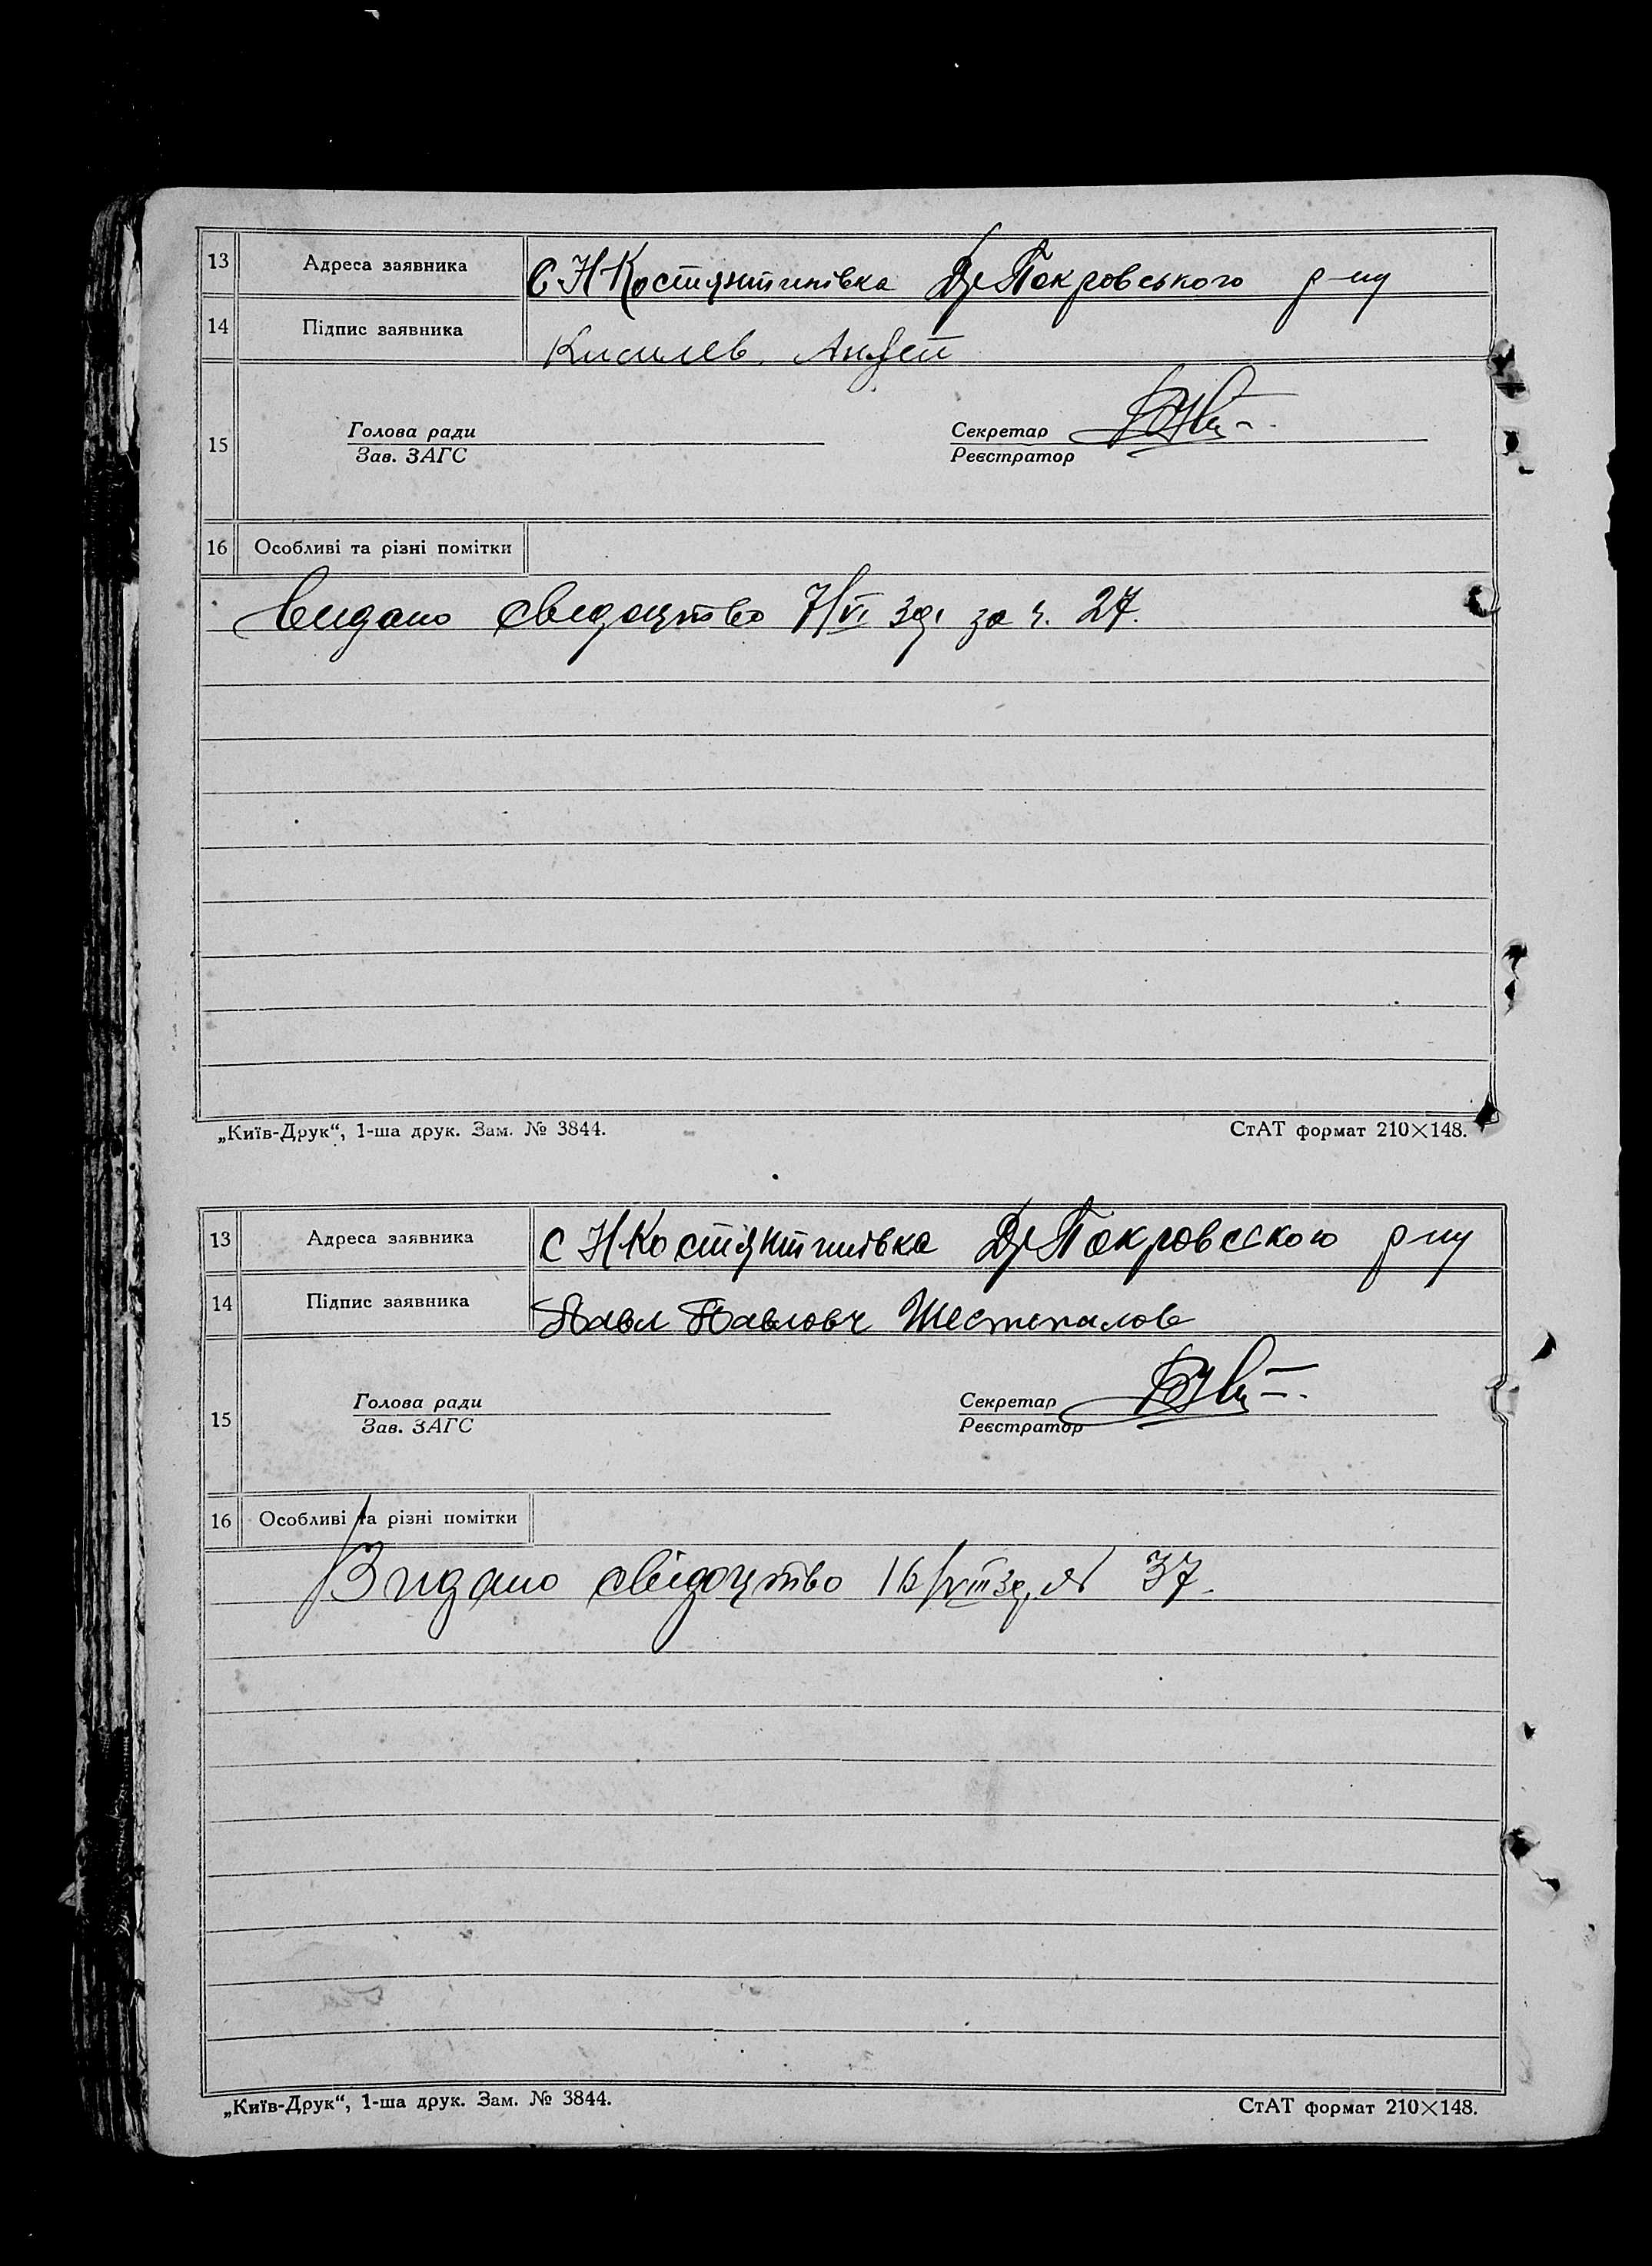 13 Адреса заявника С НКостянтинівка Др Покровського р-ну
14 Підпис заявника Кисилев Андей
15 Голова ради Секретар
Зав. ЗАГС Реєстратор
16 Особливі та різні помітки
Видано свидоцтво 7/VI 30 р. за ч. 27.
„Київ-Друк“, 1-ша друк. Зам. № 3844. СтАТ формат 210×148.
13 Адреса заявника С НКостянтинівка Др Покровського р-ну
14 Підпис заявника Павл Павлович Шестепалов
15 Голова ради Секретар
Зав. ЗАГС Реєстратор
16 Особливі та різні помітки
Видано свідоцтво 16/VIII № 37.
„Київ-Друк“, 1-ша друк. Зам. № 3844. СтАТ формат 210×148.